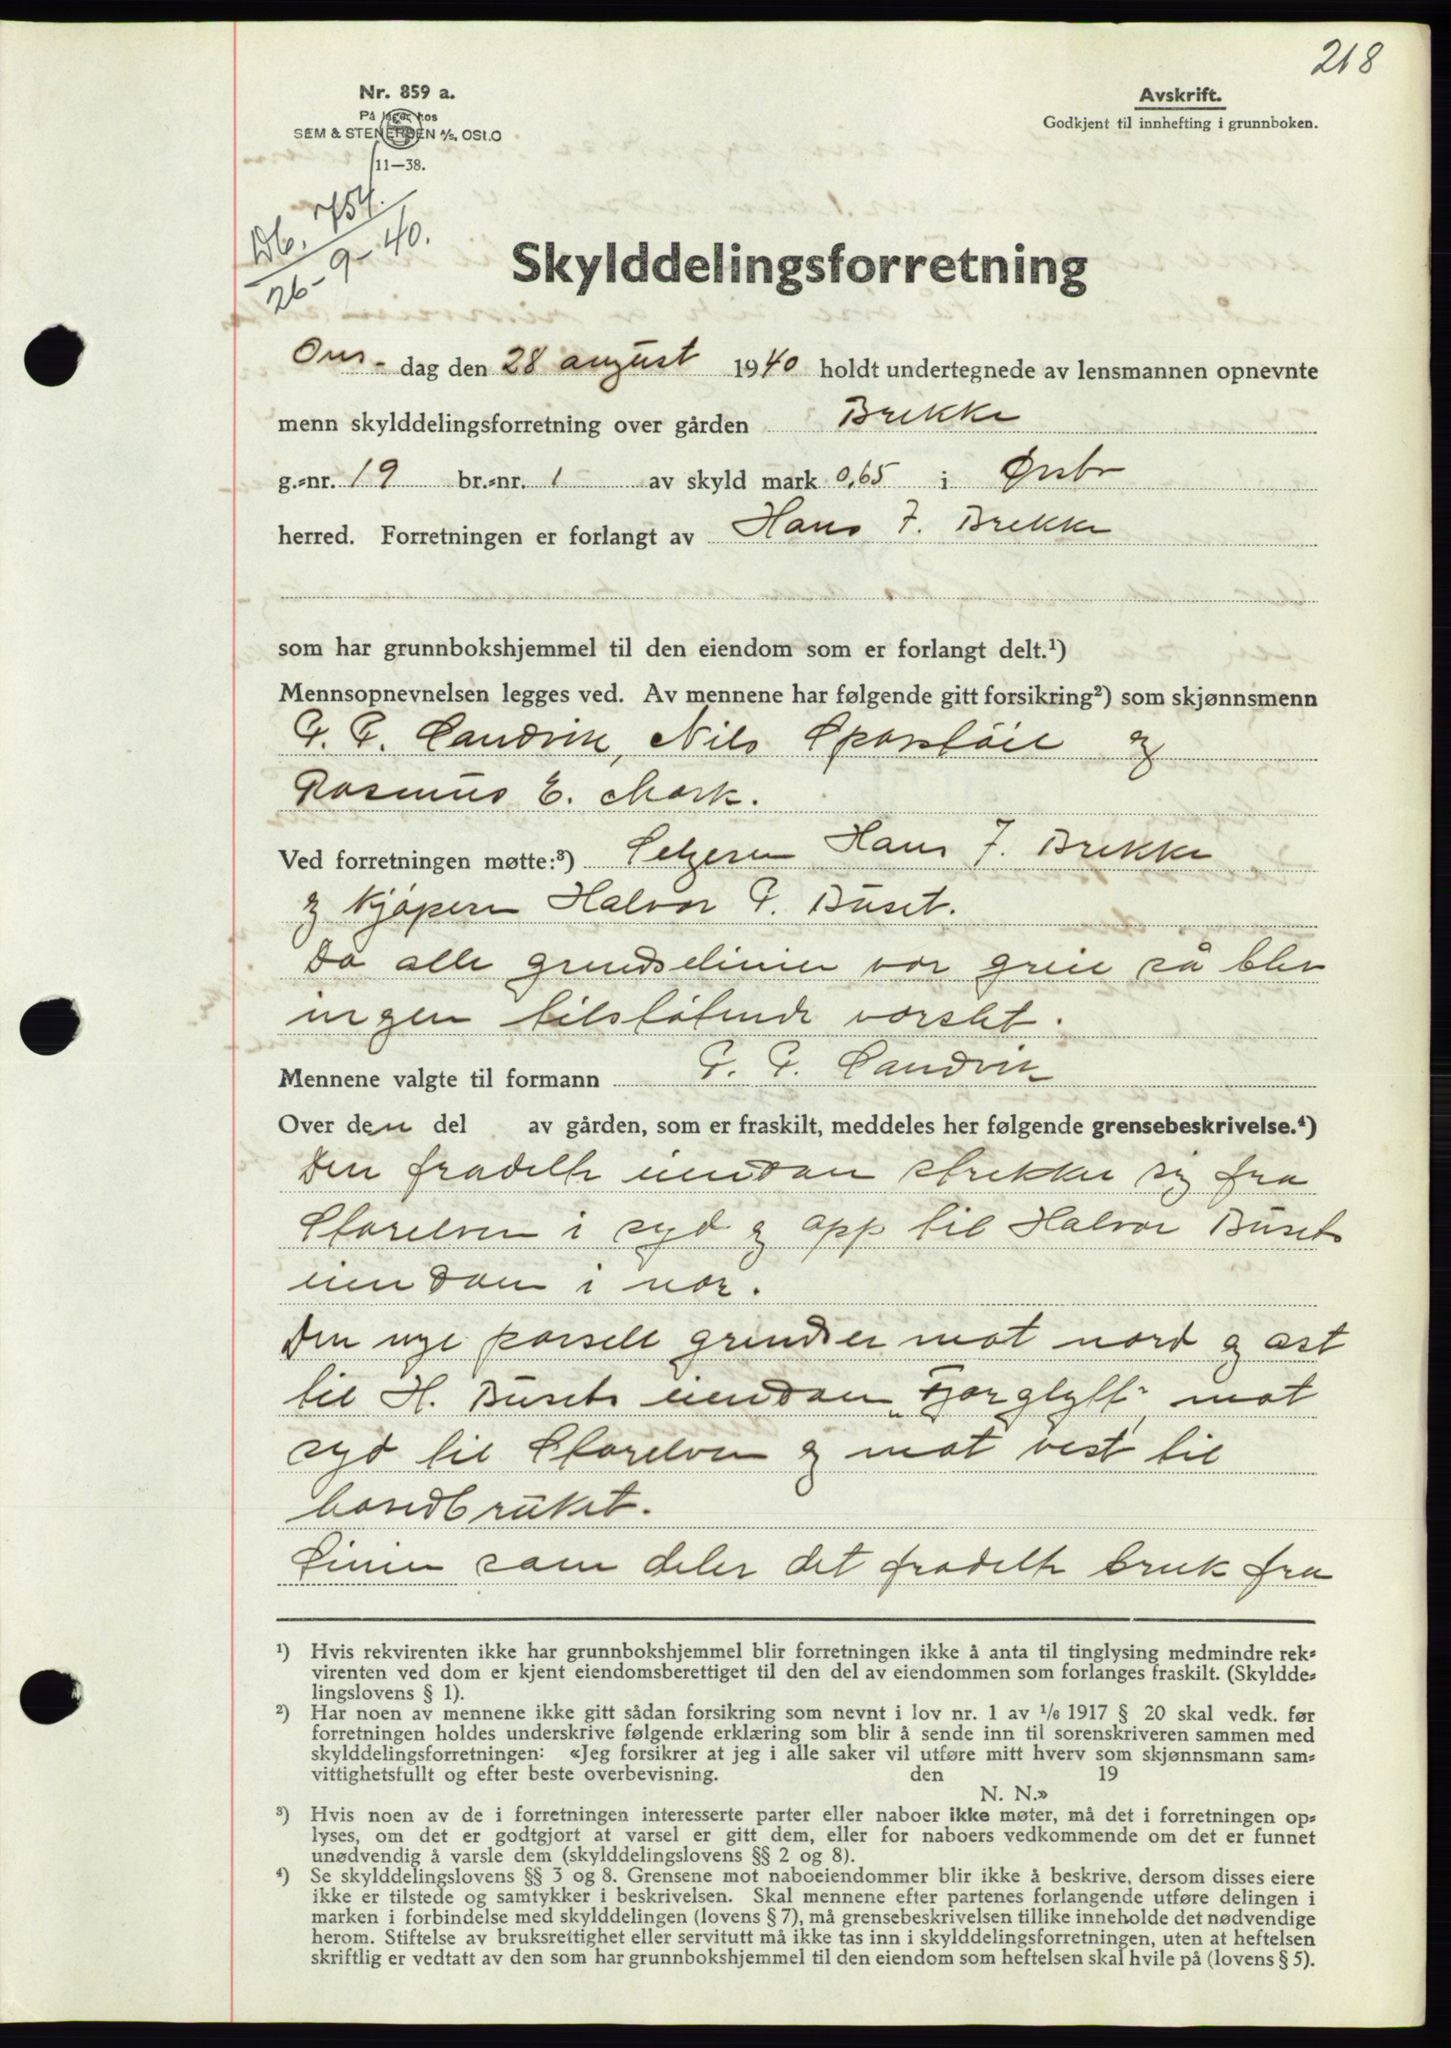 218
Nr. 859 a.
På lager hos
SEM & STENERSEN A/S, OSLO
11—38.
Avskrift.
Godkjent til innhefting i grunnboken.
Db. 754.
26-9-40.
Skylddelingsforretning
Ons- dag den 28 august 1940 holdt undertegnede av lensmannen opnevnte
menn skylddelingsforretning over gården Brekke
g.=nr. 19 br.=nr. 1 av skyld mark 0,65 i Ørsta
herred. Forretningen er forlangt av Hans J. Brekke
som har grunnbokshjemmel til den eiendom som er forlangt delt.¹)
Mennsopnevnelsen legges ved. Av mennene har følgende gitt forsikring²) som skjønnsmenn
P. P. Sandvik, Nils og
Rasmus E. Mork.
Ved forretningen møtte:³) Selgeren Hans J. Brekke
og kjøperen Halvor P. Buset.
Da alle grendselinier var greie så blev
ingen tilstøtende varslet.
Mennene valgte til formann P. P. Sandvik
Over den del av gården, som er fraskilt, meddeles her følgende grensebeskrivelse.⁴)
Den fradelte eiendom strekker sig fra
Storelven i syd og opp til Halvor Busets
eiendom i nor.
Den nye parsell grendser mot nord og øst
til H. Busets eiendom „Fjorglytt" mot
syd til Storelven og mot vest til
hovedbruket.
Linien som deler det fradelte bruk fra
¹) Hvis rekvirenten ikke har grunnbokshjemmel blir forretningen ikke å anta til tinglysing medmindre rek=
virenten ved dom er kjent eiendomsberettiget til den del av eiendommen som forlanges fraskilt. (Skyldde=
lingslovens § 1).
²) Har noen av mennene ikke gitt sådan forsikring som nevnt i lov nr. 1 av 1/6 1917 § 20 skal vedk. før
forretningen holdes underskrive følgende erklæring som blir å sende inn til sorenskriveren sammen med
skylddelingsforretningen: «Jeg forsikrer at jeg i alle saker vil utføre mitt hverv som skjønnsmann sam=
vittighetsfullt og efter beste overbevisning. den 19
N. N.»
³) Hvis noen av de i forretningen interesserte parter eller naboer ikke møter, må det i forretningen op=
lyses, om det er godtgjort at varsel er gitt dem, eller for naboers vedkommende om det er funnet
unødvendig å varsle dem (skylddelingslovens §§ 2 og 8).
⁴) Se skylddelingslovens §§ 3 og 8. Grensene mot naboeiendommer blir ikke å beskrive, dersom disses eiere
ikke er tilstede og samtykker i beskrivelsen. Skal mennene efter partenes forlangende utføre delingen i
marken i forbindelse med skylddelingen (lovens § 7), må grensebeskrivelsen tillike inneholde det nødvendige
herom. Stiftelse av bruksrettighet eller servitutt må ikke tas inn i skylddelingsforretningen, uten at heftelsen
skriftlig er vedtatt av den som har grunnbokshjemmel til den eiendom som heftelsen skal hvile på (lovens § 5).